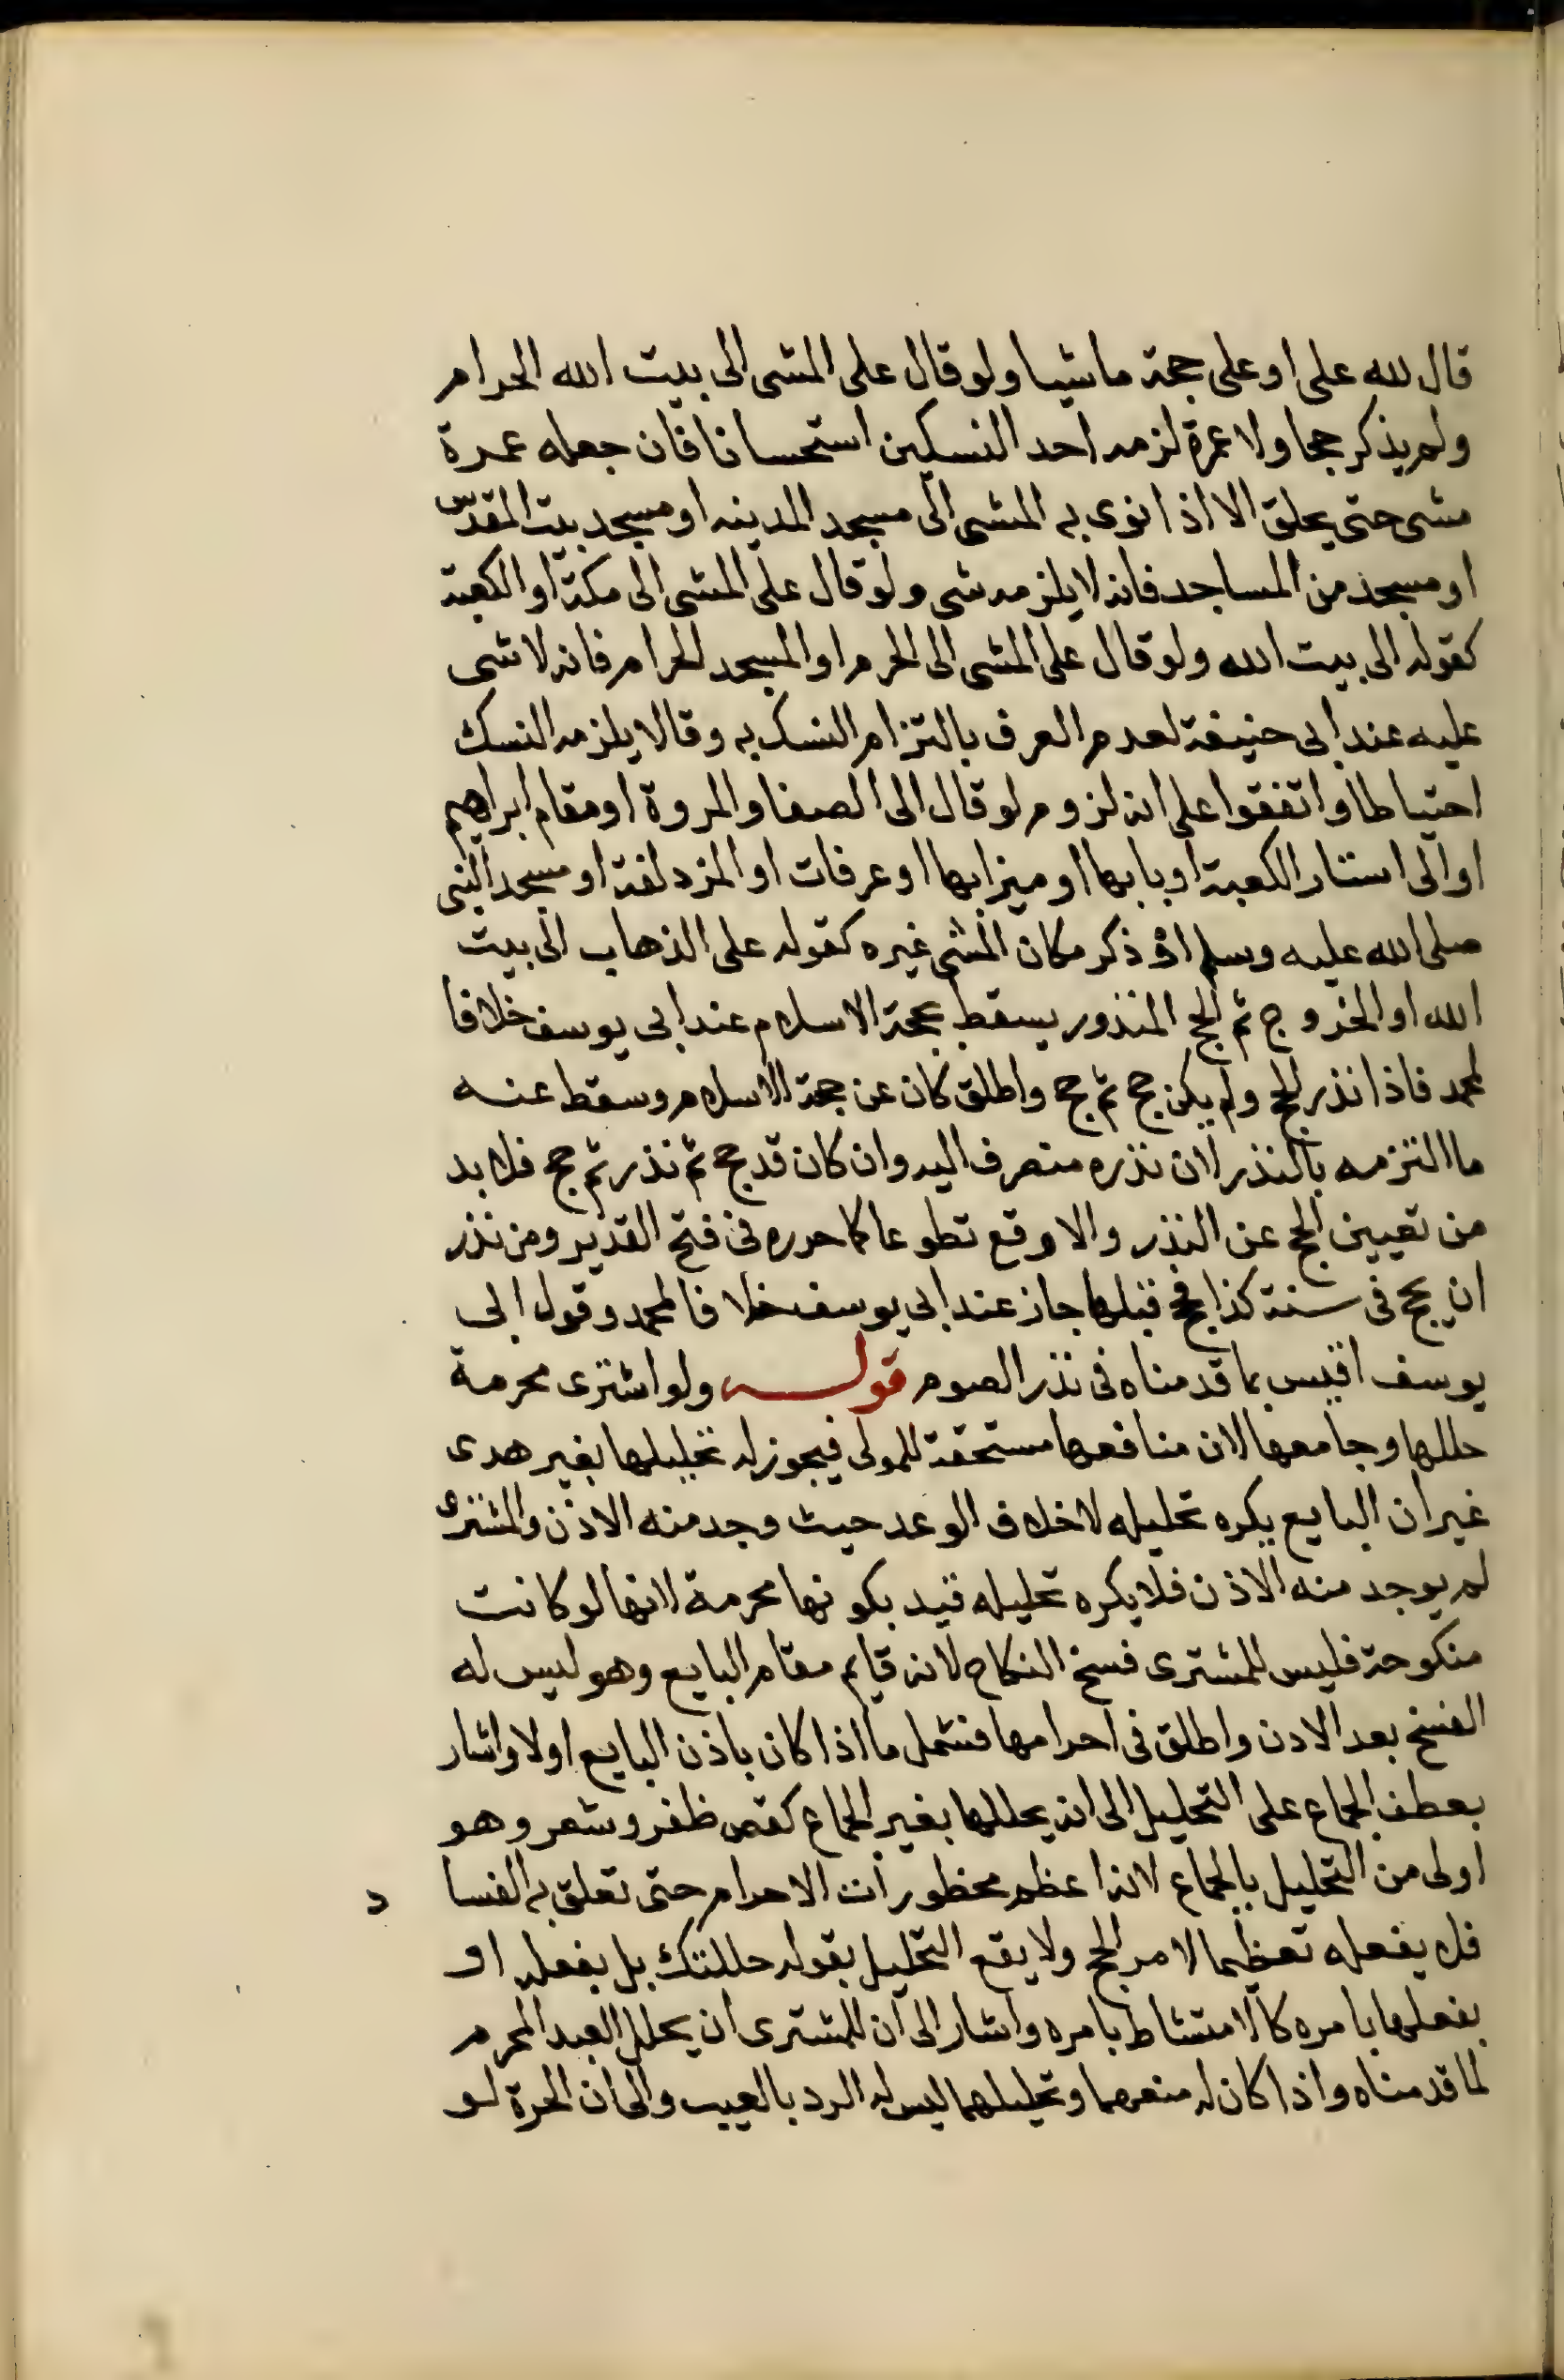 قال لله على او على حجة ماشيا ولو قال على المشى الى بيت الله الحرام
ولم يذكر حجا ولا عمرة لزمه احد النسكين استحسانا فان جعله عمرة
مشى حتى يحلق الا اذا نوى به المشى الى مسجد المدينه او مسجد بيت المقدس
او مسجد من المساجد فانه لا يلزمه شى ولو قال على المشى الى مكة او الكعبة
كقوله الى بيت الله ولو قال على المشى الى الحرم او المسجد الحرام فانه لا شى
عليه عند ابى حنيفة لعدم العرف بالتزام النسك به وقالا يلزمه النسك
احتياطا واتفقوا على انه لزوم لو قال الى الصفا والمروة او مقام ابراهيم
او الى استار الكعبة او بابها او ميزابها او عرفات او المزدلفة او مسجد النبى
صلى الله عليه وسلم او ذكر مكان المشى غيره كقوله على الذهاب الى بيت
الله او الخروج ثم الحج المنذور يسقط بحجة الاسلام عند ابى يوسف خلافا
لمحمد فاذا نذر الحج ولم يكن حج ثم حج واطلق كان عن حجة الاسلام وسقط عنه
ما التزمه بالنذر لان نذره منصرف اليه وان كان قد حج ثم نذر ثم حج فلا بد
من تعيين الحج عن النذر والا وقع تطوعا كما حرره فى فتح القدير ومن نذر
ان يحج فى سنة كذا فحج قبلها جاز عند ابى يوسف خلافا لمحمد وقول ابى
يوسف اقيس بما قدمناه فى نذر الصوم قوله ولو اشترى محرمة
حللها وجامعها لان منافعها مستحقة للمولى فيجوز له تحليلها بغير هدى
غير ان البايع يكره تحليله لاخلاف الوعد حيث وجد منه الاذن والمشترى
لم يوجد منه الاذن فلا يكره تحليله قيد بكونها محرمة لانها لو كانت
منكوحة فليس للمشترى فسخ النكاح لانه قايم مقام البايع وهو ليس له
الفسخ بعد الاذن واطلق فى احرامها فشمل ما اذا كان باذن البايع اولا واشار
بعطف الجماع على التحليل الى انه يحللها بغير الجماع كقص ظفر وشعر وهو
اولى من التحليل بالجماع لانه اعظم محظورات الاحرام حتى تعلق به الفسا د
فلا يفعله تعظيما لامر الحج ولا يقع التحليل بقوله حللتك بل بفعله او
بفعلها بامره كالامتشاط بامره واشار الى ان للمشترى ان يحلل العبد المحرم
لما قدمناه واذا كان له منعهما وتحليلهما ليس له الرد بالعيب والى ان الحرة لو